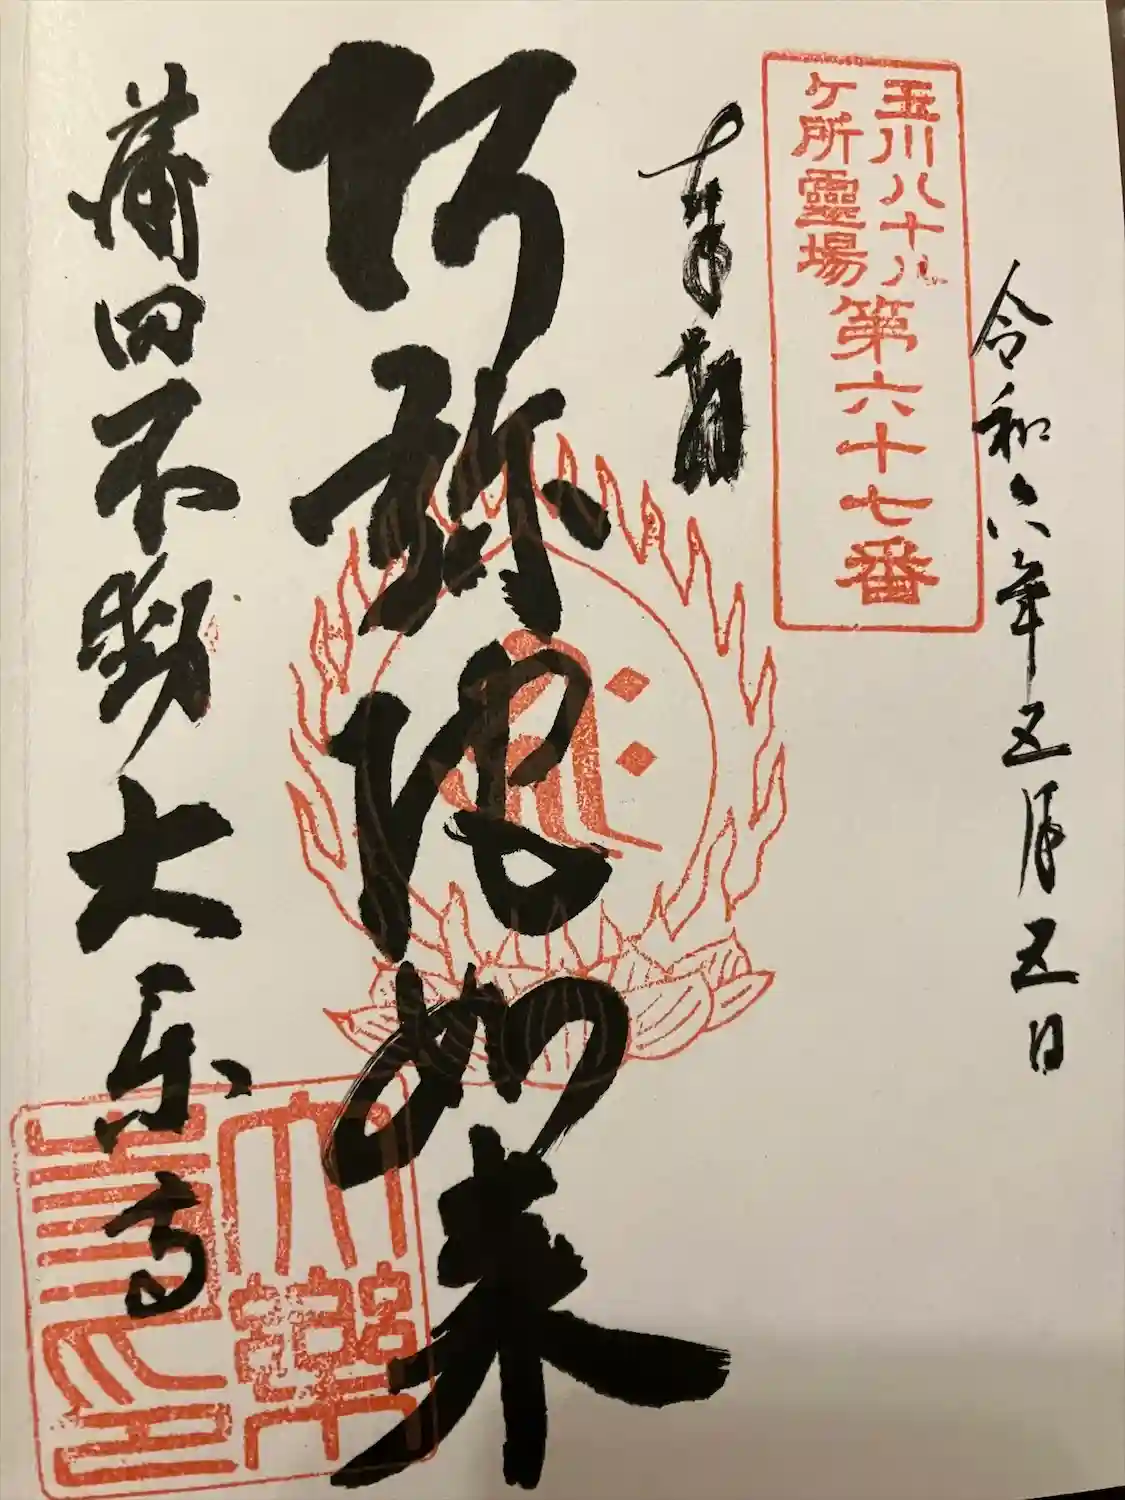 令和六年五月五日
玉川八十八
ケ所霊場
第六十七番
奉拝
阿弥陀如来
蒲田不動大楽寺